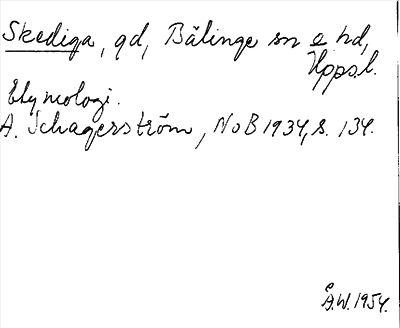 Skediga, gd, Bälinge sn o hd,
Upps.l.
Etymologi.
A. Schagerström, NoB 1934, s. 134.
Å.W. 1954.